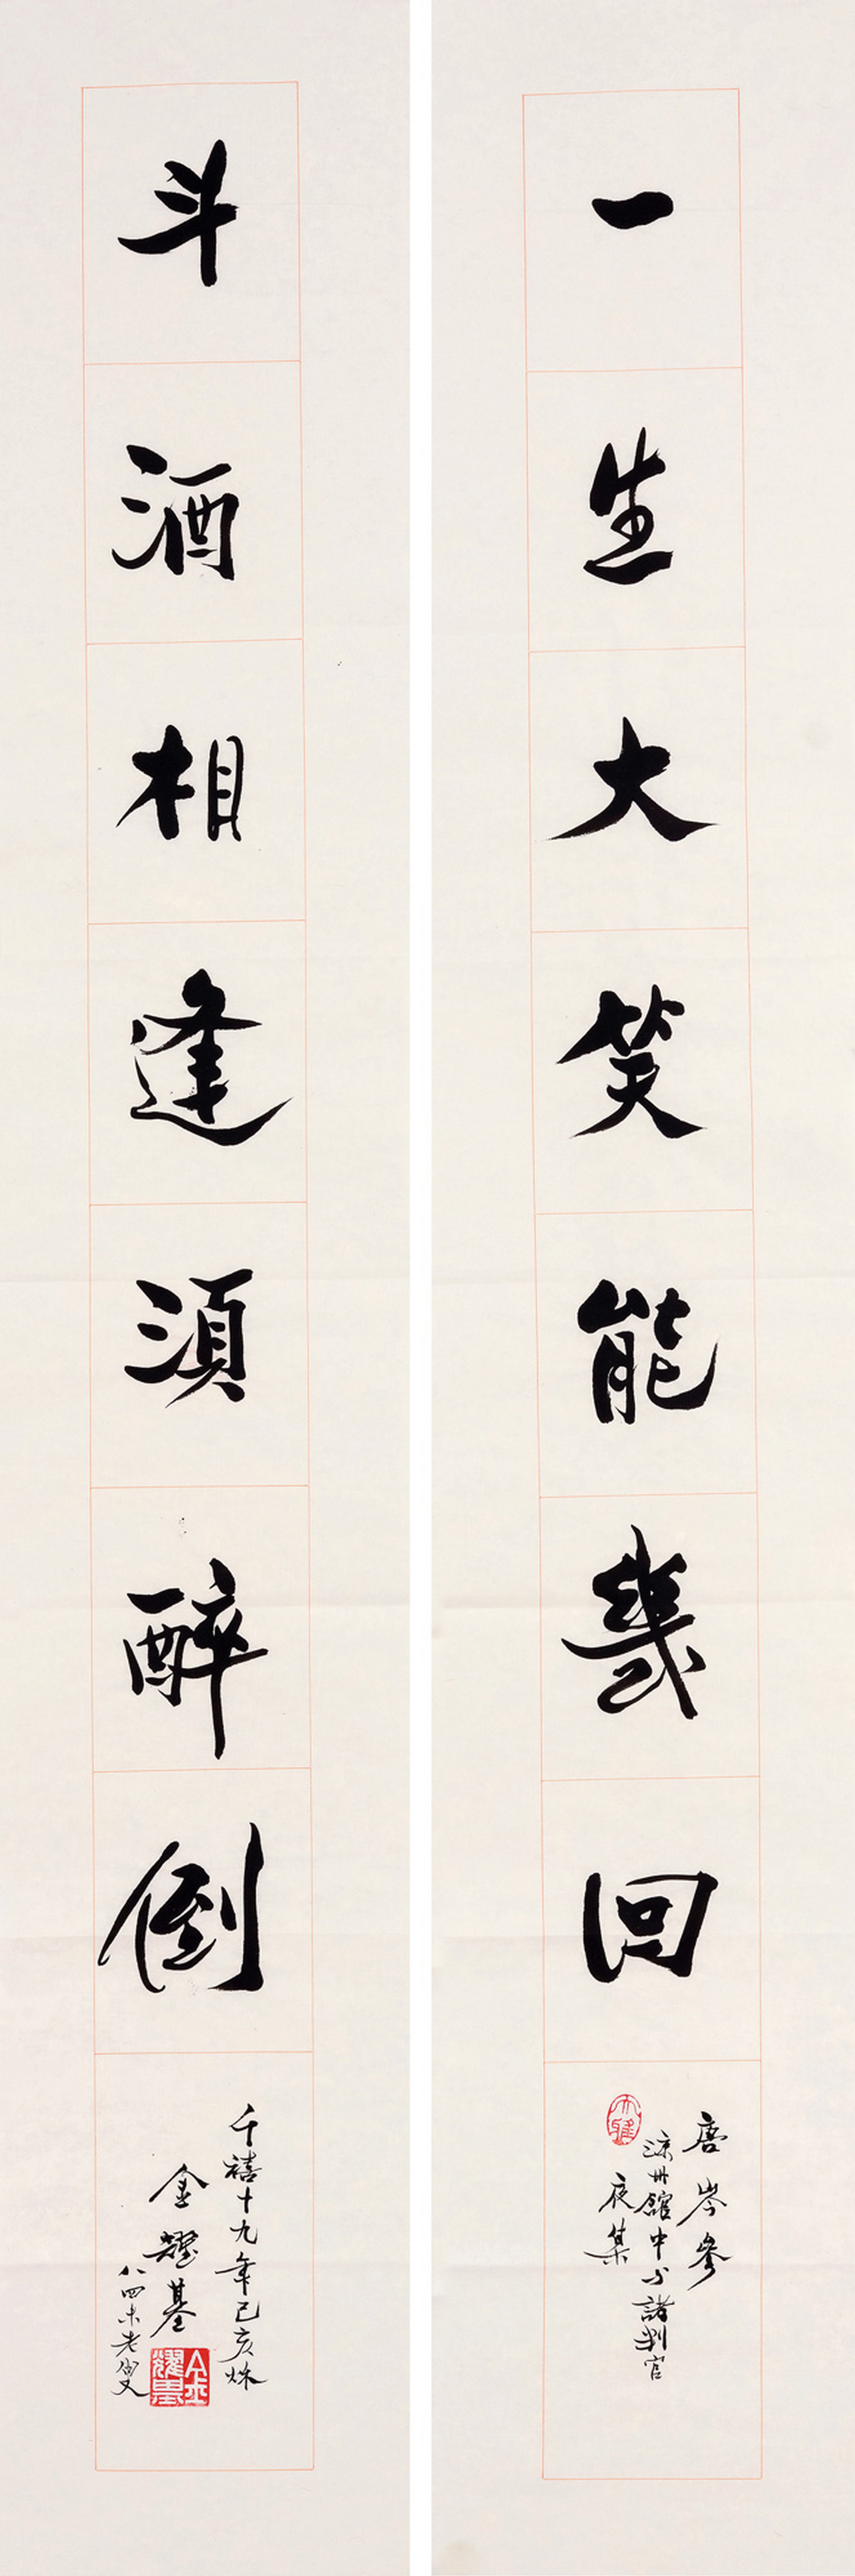 一生大笑能幾回
唐岑參
涼州館中与諸判官
夜集
斗酒相逢須醉倒
千禧十九年己亥秌
金耀基
八四未老叟
金耀基